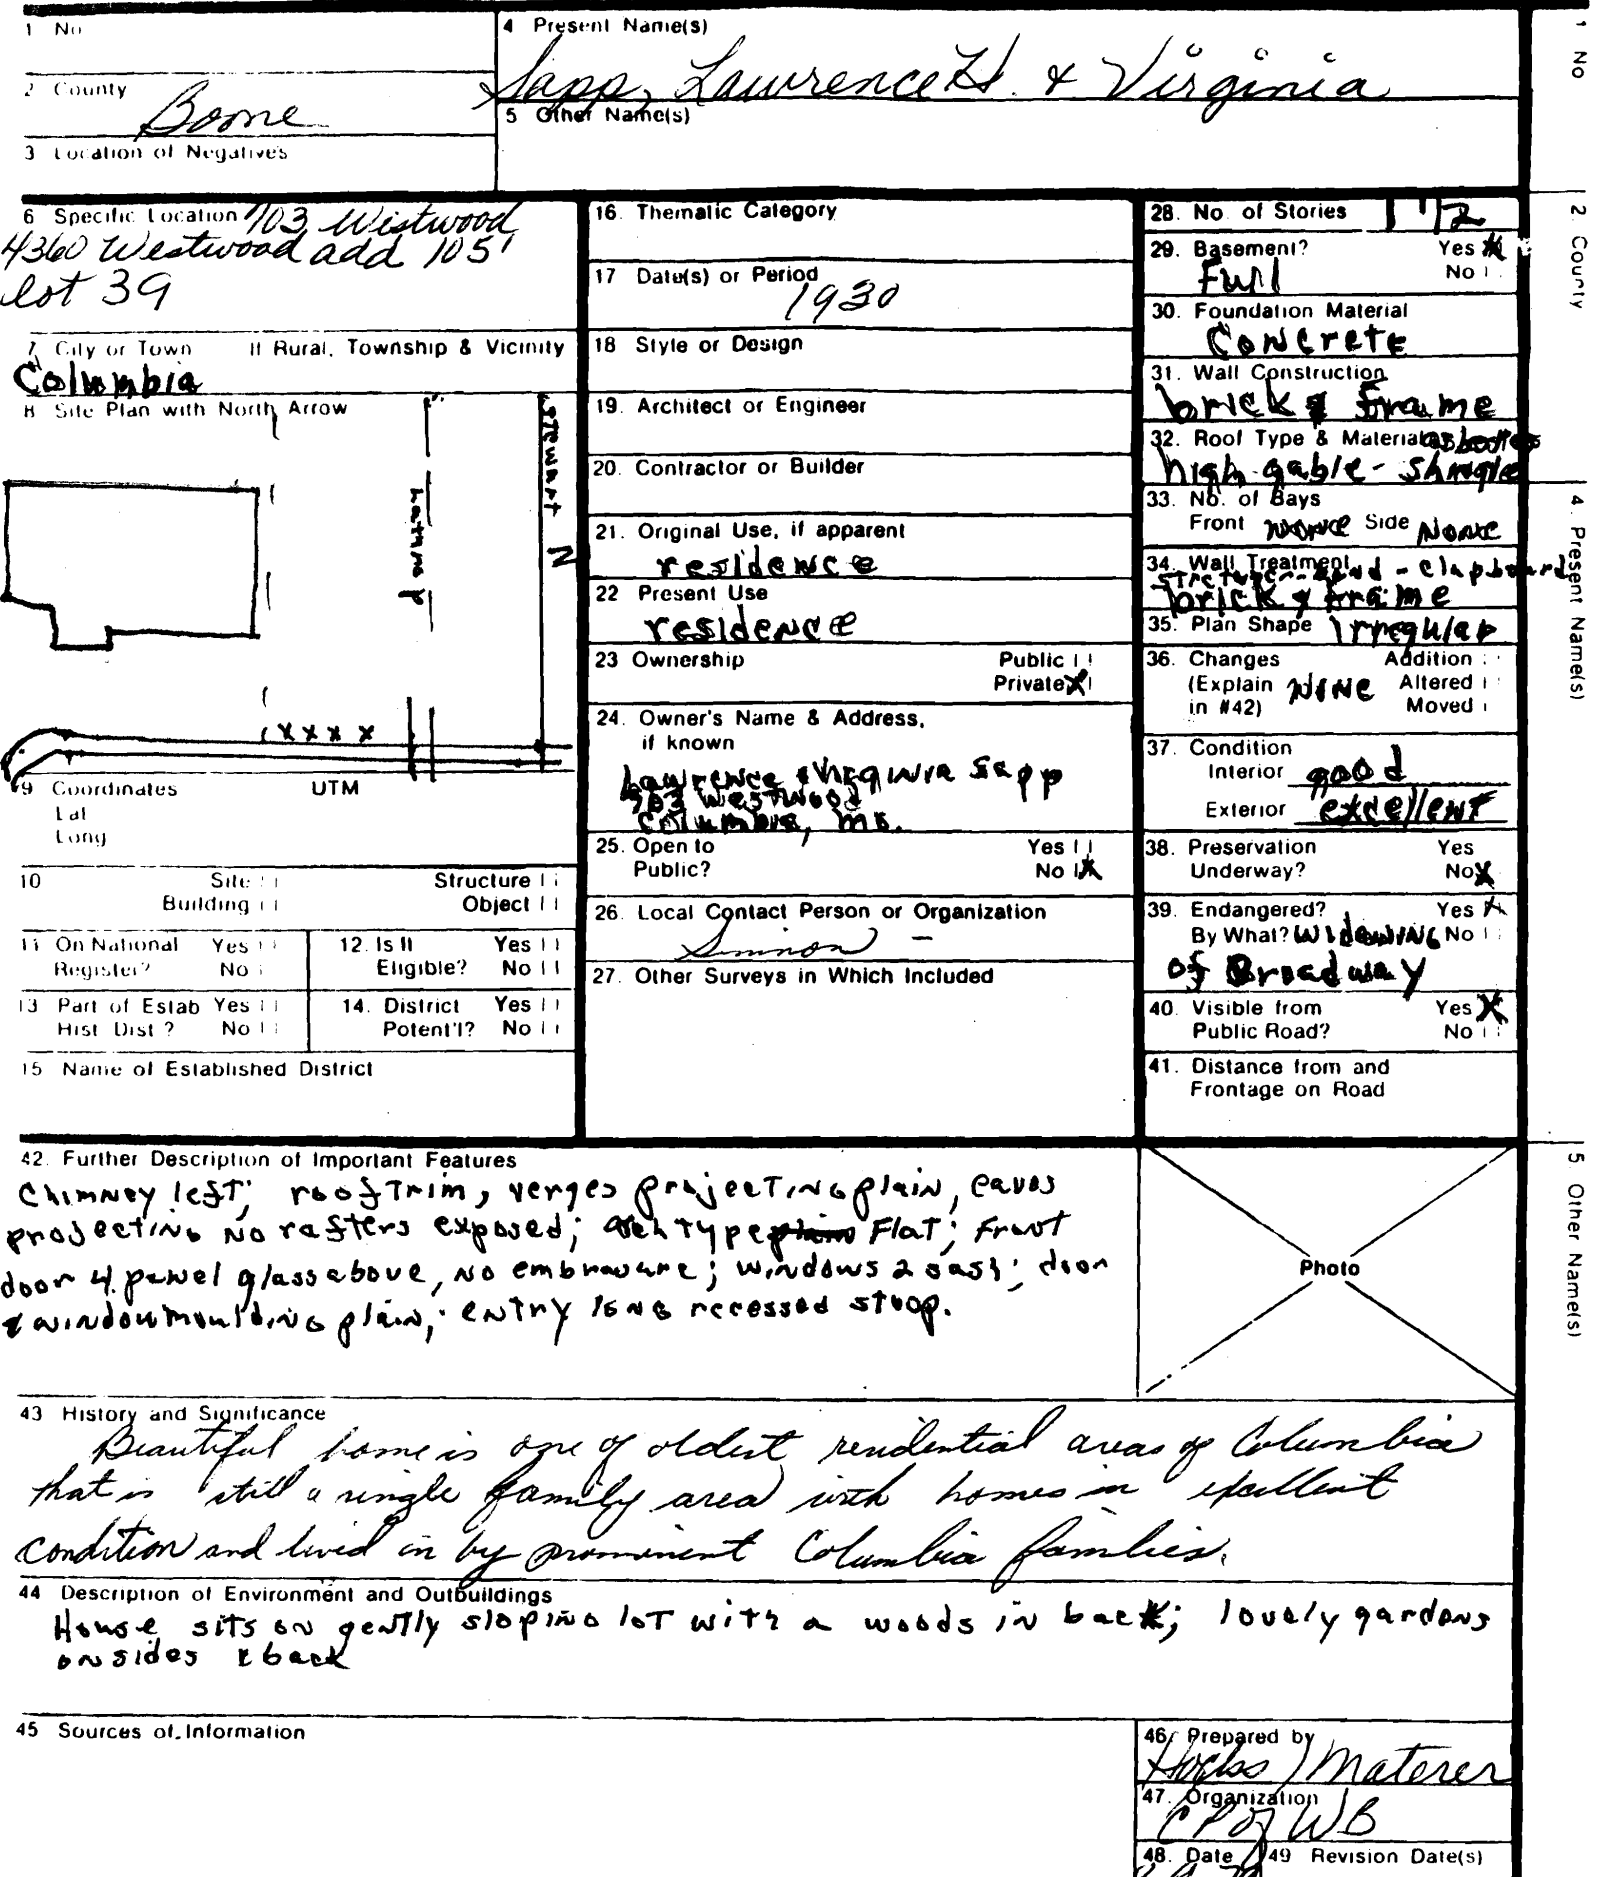 1 No
4 Present Name(s)
Sapp, Lawrence H. & Virginia
2 County
Boone
5 Other Name(s)
3 Location of Negatives
6 Specific Location 703 Westwood
4360 Westwood add 105'
lot 39
7 City or Town If Rural, Township & Vicinity
Columbia
8 Site Plan with North Arrow
Stewart
N
Lathrop
x x x x
9 Coordinates UTM
Lat
Long
10 Site Structure
Building Object
11 On National Register? Yes No
12. Is It Eligible? Yes No
13 Part of Estab Hist Dist? Yes No
14. District Potent'l? Yes No
15 Name of Established District
16. Thematic Category
17 Date(s) or Period
1930
18 Style or Design
19. Architect or Engineer
20. Contractor or Builder
21. Original Use, if apparent
residence
22 Present Use
residence
23 Ownership Public
Private X
24. Owner's Name & Address,
if known
Lawrence & Virginia Sapp
703 Westwood
Columbia, Mo.
25. Open to Yes
Public? No X
26. Local Contact Person or Organization
27. Other Surveys in Which Included
28. No. of Stories 1 1/2
29. Basement? Yes X
Full No
30. Foundation Material
Concrete
31. Wall Construction
brick & frame
32. Roof Type & Material asbestos
high gable - shingle
33. No. of Bays
Front none Side None
34. Wall Treatment
stretcher-bond - clapboard
brick & frame
35. Plan Shape Irregular
36. Changes Addition
(Explain None Altered
in #42) Moved
37. Condition
Interior good
Exterior excellent
38. Preservation Yes
Underway? No X
39. Endangered? Yes X
By What? Widening No
of Broadway
40. Visible from Yes X
Public Road? No
41. Distance from and
Frontage on Road
42. Further Description of Important Features
Chimney left; roof trim, verges projecting plain, eaves
projecting no rafters exposed; type plain Flat; front
door 4 panel glass above, no embrasure; windows 2 sash; door
& window moulding plain; entry is no recessed stoop.
Photo
43 History and Significance
Beautiful home is one of oldest residential areas of Columbia
that is still a single family area with homes in excellent
condition and lived in by prominent Columbia families.
44 Description of Environment and Outbuildings
House sits on gently sloping lot with a woods in back; lovely gardens
on sides & back
45 Sources of Information
46. Prepared by
Materer
47. Organization
CP of WB
48. Date 49 Revision Date(s)
1 No
2. County
4. Present Name(s)
5. Other Name(s)